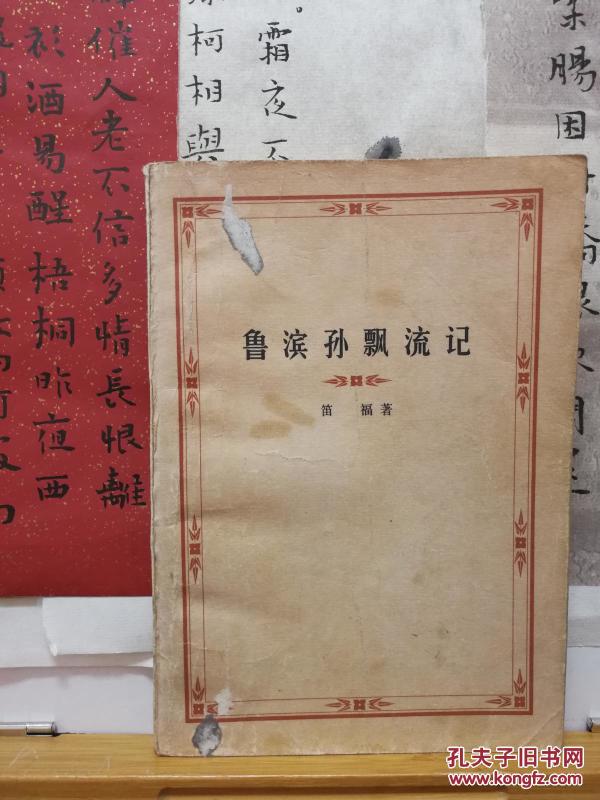 鲁滨孙飘流记
笛 福著
催人老不信多情長恨離
衫酒易醒梧桐昨夜西
柯相與
霜夜不
腸困
孔夫子旧书网
www.kongfz.com